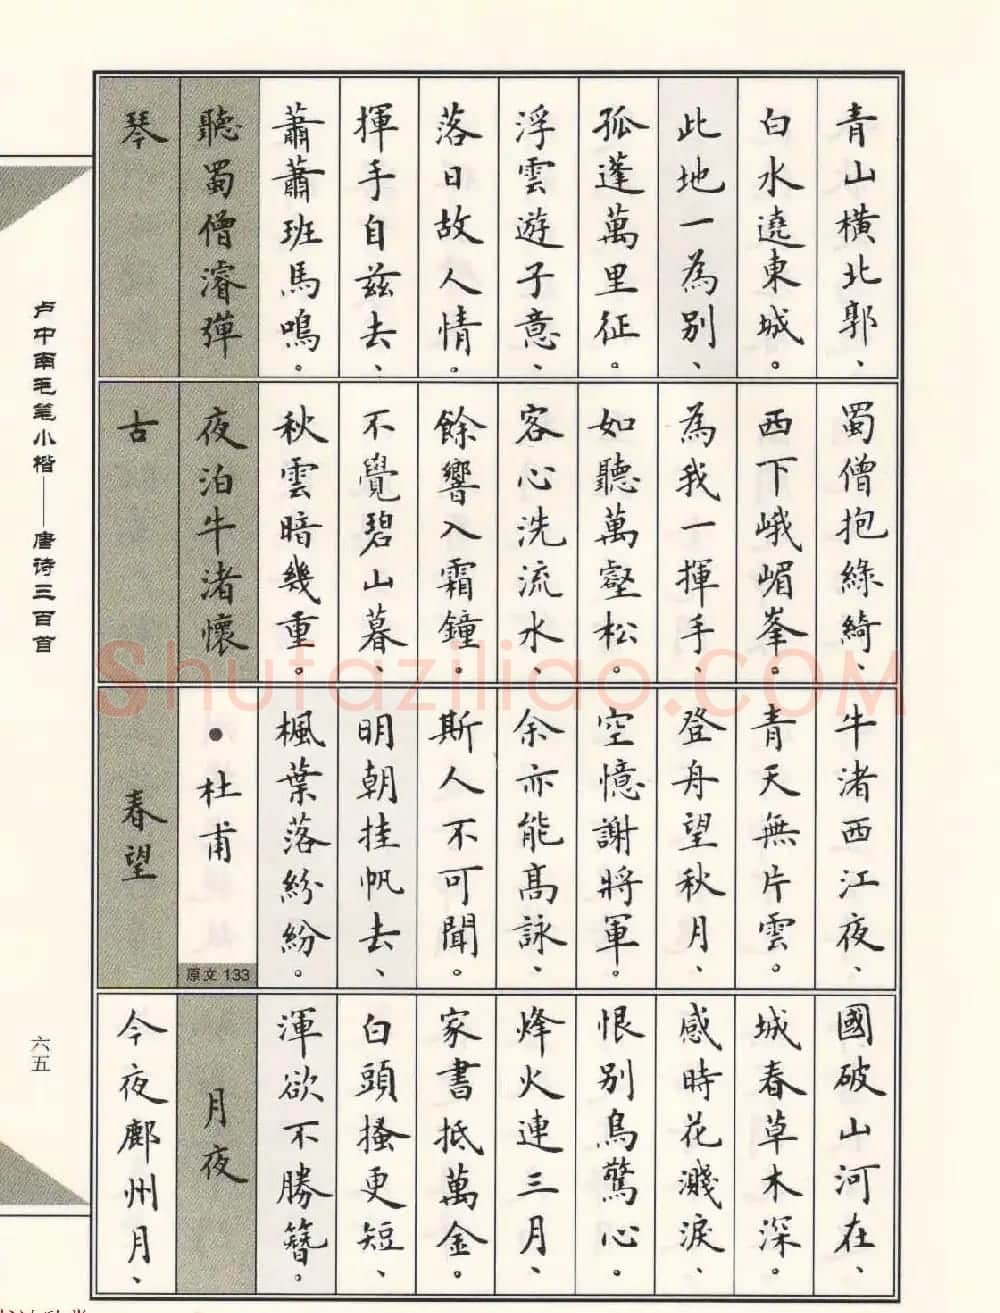 青山橫北郭、
白水遶東城。
此地一為別、
孤蓬萬里征。
浮雲遊子意、
落日故人情。
揮手自兹去、
蕭蕭班馬鳴。
聽蜀僧濬彈
琴
蜀僧抱綠綺、
西下峨嵋峯。
為我一揮手、
如聽萬壑松。
客心洗流水、
餘響入霜鐘。
不覺碧山暮、
秋雲暗幾重。
夜泊牛渚懷
古
牛渚西江夜、
青天無片雲。
登舟望秋月、
空憶謝將軍。
余亦能高詠、
斯人不可聞。
明朝挂帆去、
楓葉落紛紛。
•杜甫
原文 133
春望
國破山河在、
城春草木深。
感時花濺淚、
恨別鳥驚心。
烽火連三月、
家書抵萬金。
白頭搔更短、
渾欲不勝簪。
月夜
今夜鄜州月、
卢中南毛笔小楷——唐诗三百首
六五
Shufaziliao.COM